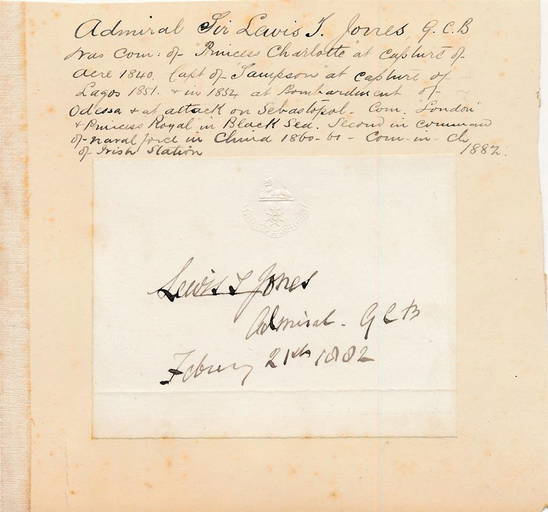 Admiral Sir Lewis T. Jones, G.C.B
was Com: of "Princess Charlotte" at capture of
Acre 1840, Capt of "Sampson" at capture of
Lagos 1851. & in 1854 at Bombardment of
Odessa & at attack on Sebastopol. Com. "London"
& "Princess Royal" in Black Sea. Second in command
of naval force in China 1860-61 - Com-in-Ch
of Irish Station 1882.
Lewis T Jones
Admiral - GCB
Febury 21st 1882